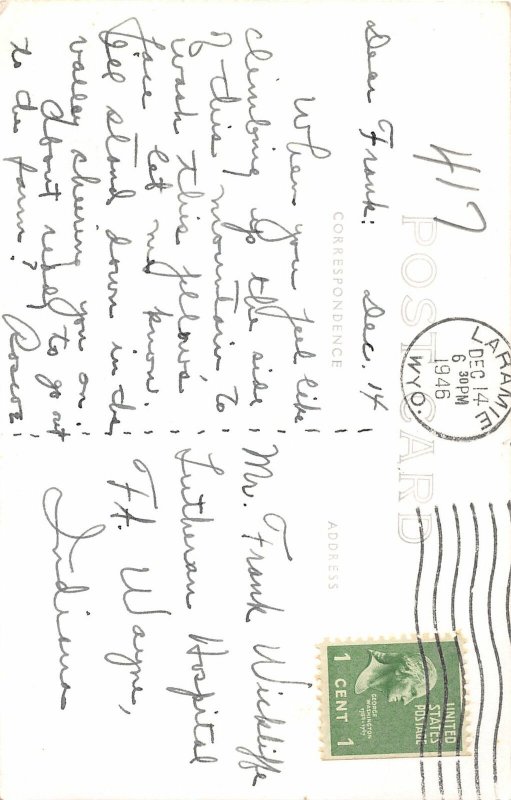 417
POST CARD
CORRESPONDENCE
ADDRESS
LARAMIE
DEC 14
6 30PM
1946
WYO.
UNITED
STATES
POSTAGE
GEORGE
WASHINGTON
1 CENT 1
Dear Frank: Dec. 14
When you feel like
climbing up the side
of this mountain to
wash this fellow's
face let me know.
I'll stand down in the
valley cheering you on!
About ready to go out
to the farm?
Roscoe
Mr. Frank Wickliffe
Lutheran Hospital
Ft. Wayne,
Indiana